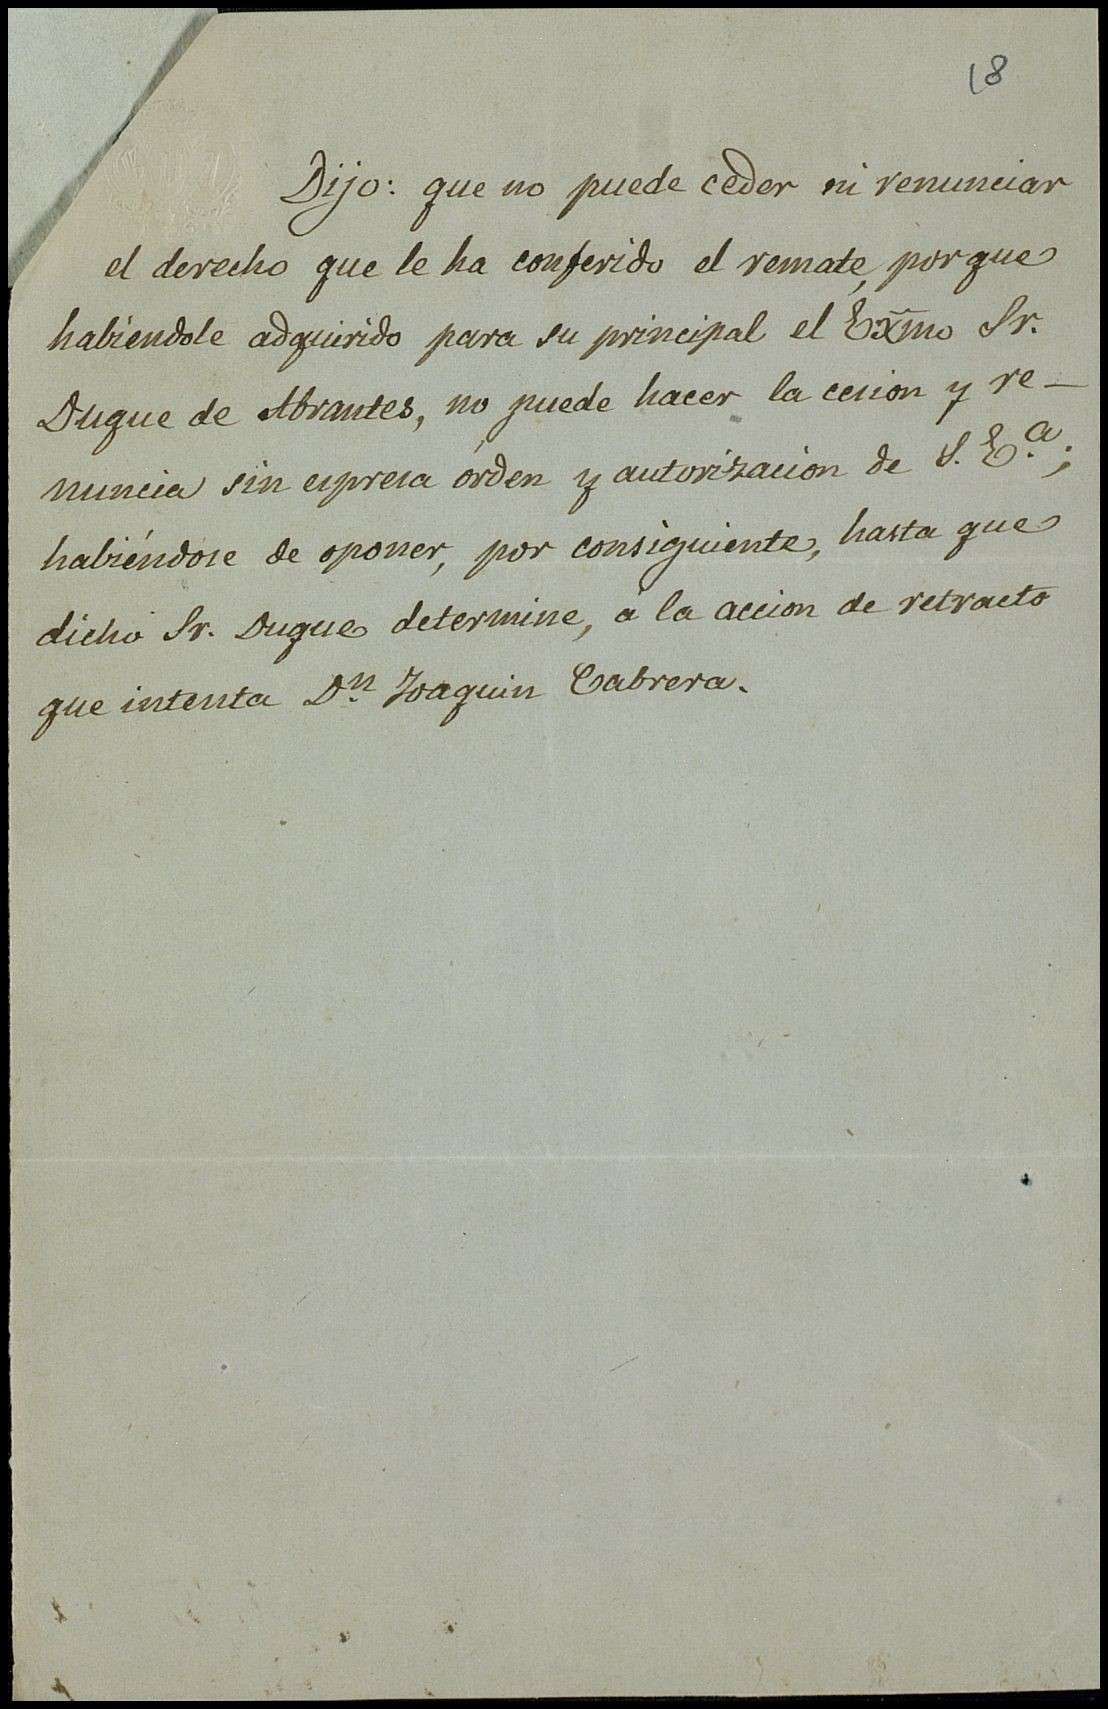 18
Dijo: que no puede ceder ni renunciar
el derecho que le ha conferido el remate, porque
habiendole adquirido para su principal el Exmo Sr.
Duque de Abrantes, no puede hacer la cesion y re-
nuncia sin espresa órden y autorizacion de S. E.a;
habiéndose de oponer, por consiguiente, hasta que
dicho Sr. Duque determine, á la accion de retracto
que intenta Dn Joaquin Cabrera.